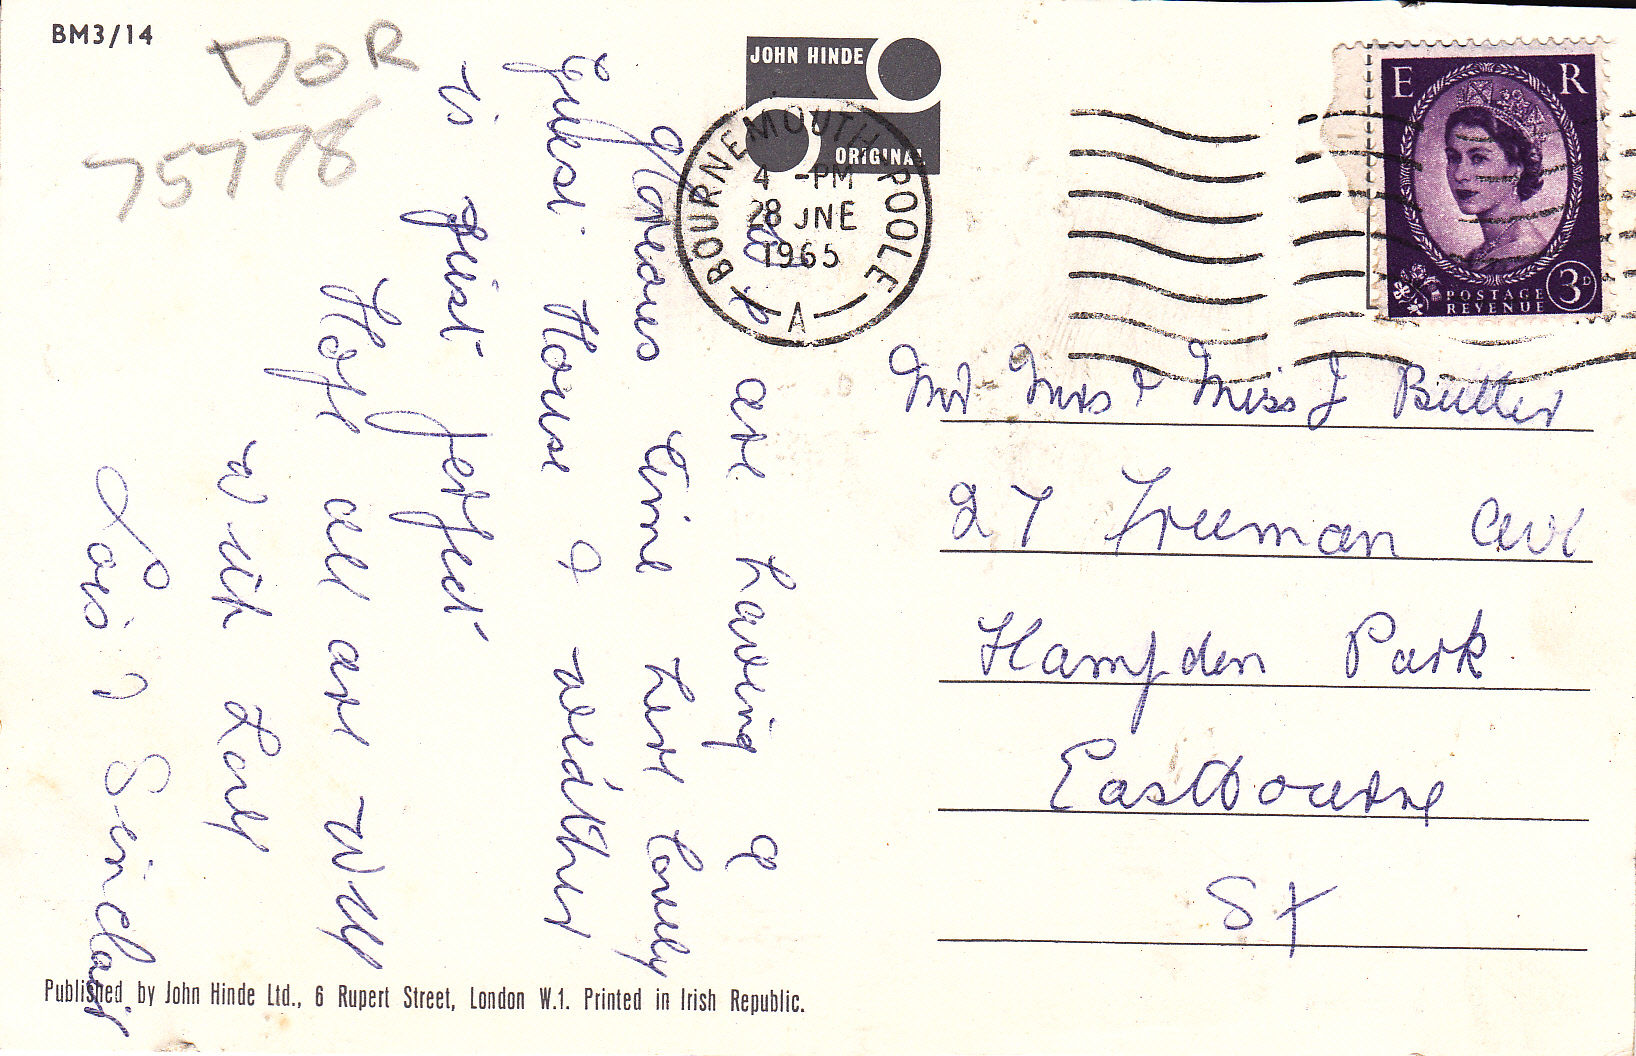 BM3/14
DOR
75778
JOHN HINDE
ORIGINAL
BOURNEMOUTH POOLE
4 -PM
28 JNE
1965
A
E R
POSTAGE
REVENUE
3D
are having a
glorious time here lovely
guest House & weather
is just perfect
Hope all are well
with Love
Lois & Sinclair
Mr Mrs & Miss J Butler
27 Freeman Ave
Hampden Park
Eastbourne
SX
Published by John Hinde Ltd., 6 Rupert Street, London W.1. Printed in Irish Republic.